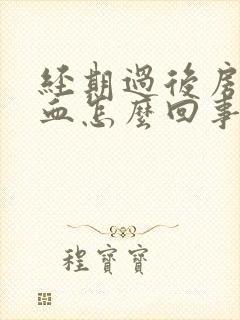 經期過後房
血怎麼回事
程寶寶